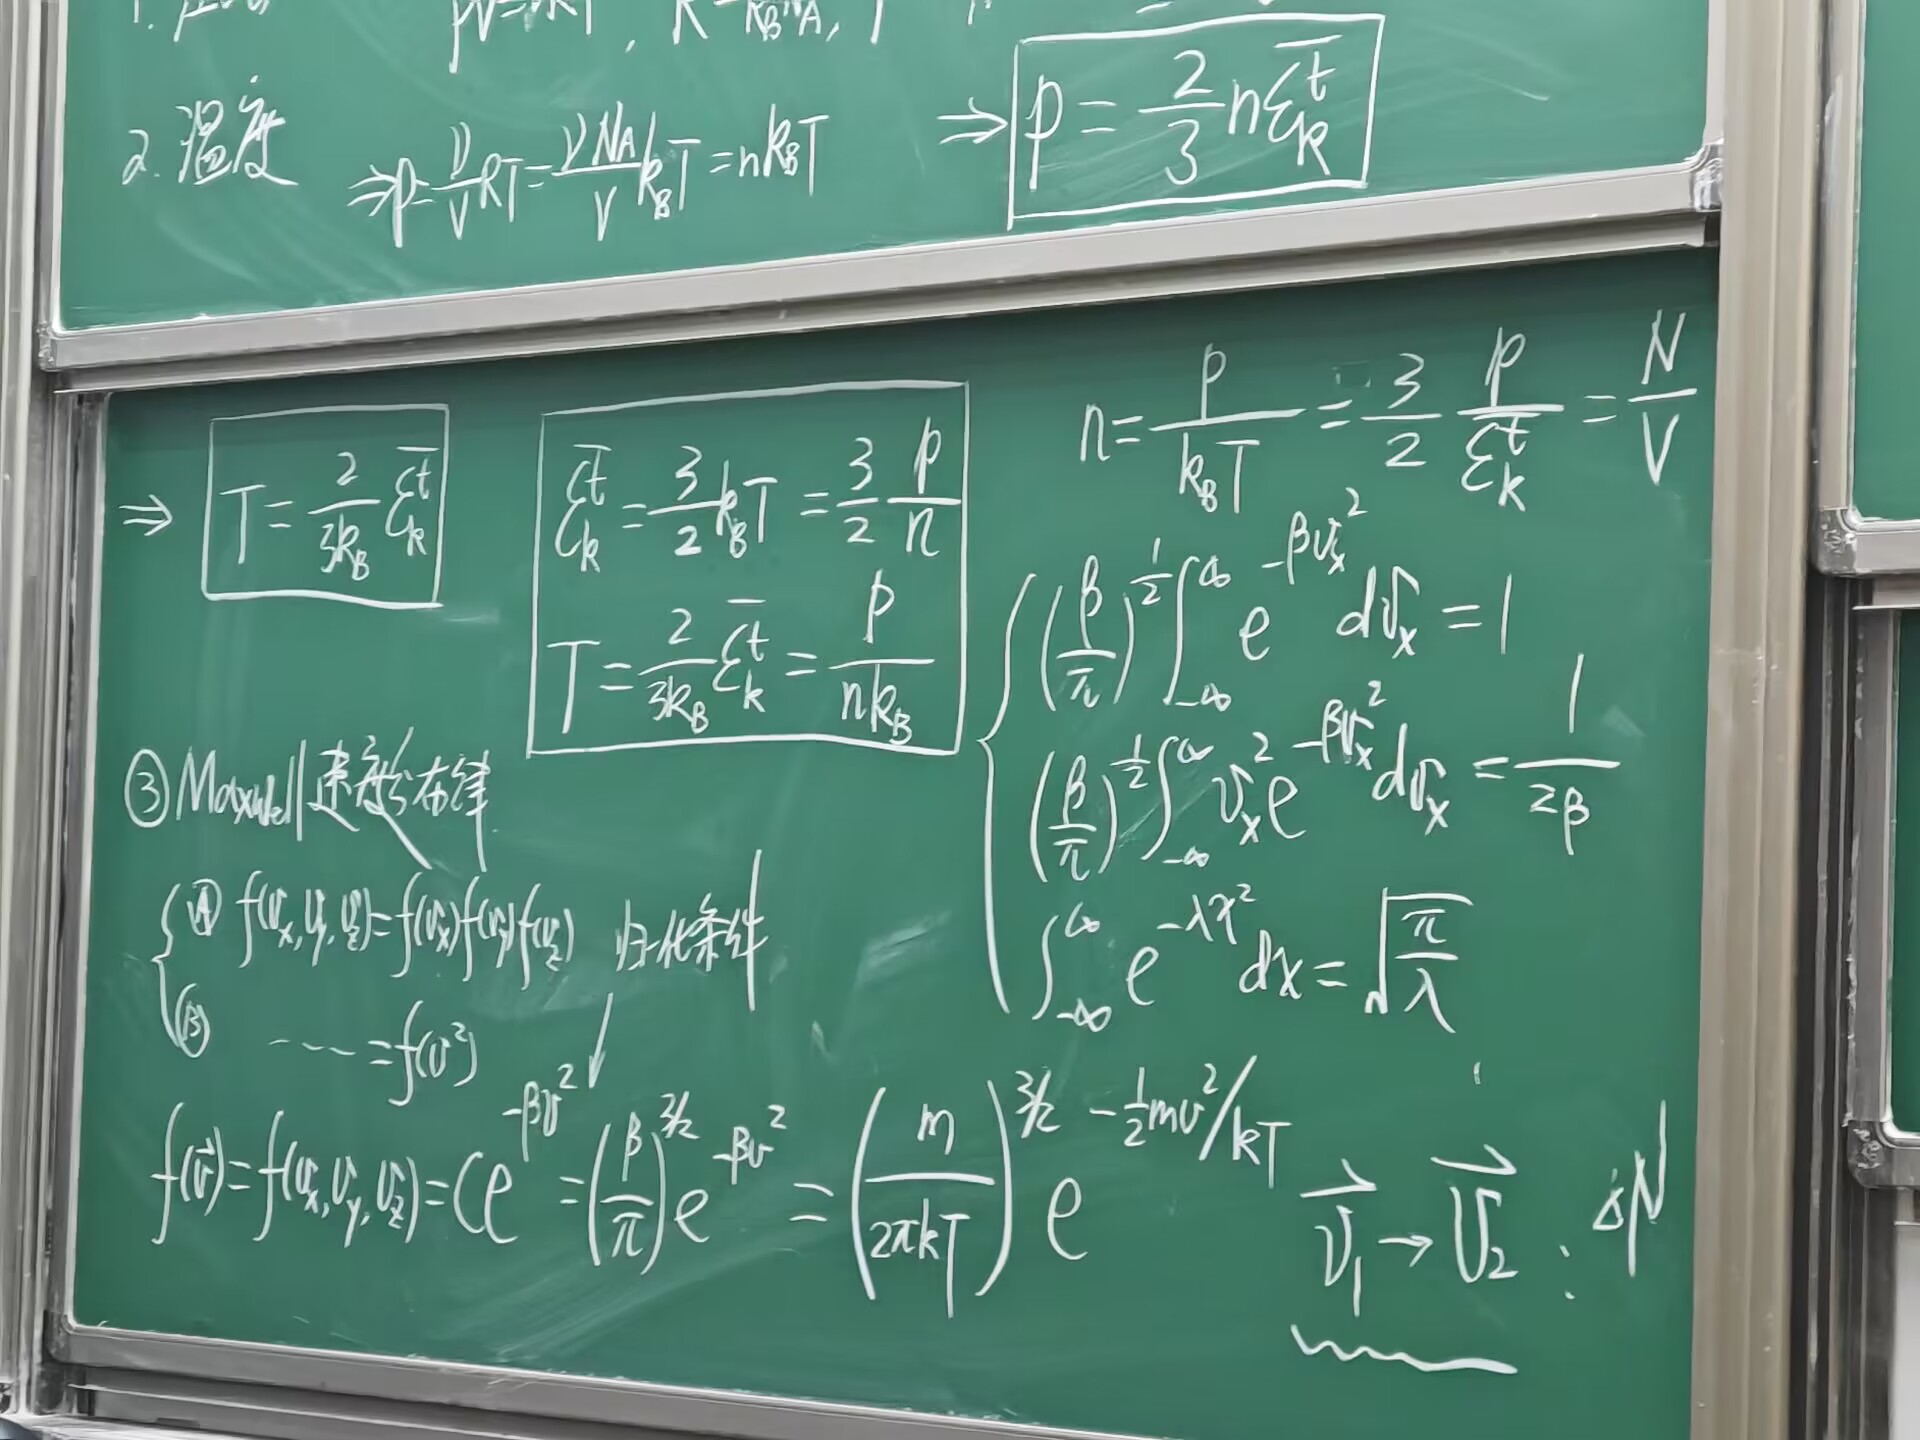 pV=νRT, R=k_B N_A,
2. 温度 ⇒p=ν/V RT=νN_A/V k_B T=nk_B T ⇒ p=2/3 n ε̄_k^t
⇒ T=2/(3k_B) ε̄_k^t
ε̄_k^t=3/2 k_B T=3/2 p/n
T=2/(3k_B) ε̄_k^t=p/(nk_B)
n=p/(k_B T)=3/2 p/ε̄_k^t=N/V
(β/π)^(1/2) ∫_{-∞}^{∞} e^(-βv_x^2) dv_x=1
(β/π)^(1/2) ∫_{-∞}^{∞} v_x^2 e^(-βv_x^2) dv_x=1/(2β)
∫_{-∞}^{∞} e^(-λx^2) dx=√(π/λ)
③ Maxwell速度分布律
Ⓐ f(v_x, v_y, v_z)=f(v_x)f(v_y)f(v_z) 归一化条件
Ⓑ ……=f(v^2) ↓
f(v⃗)=f(v_x, v_y, v_z)=Ce^(-βv^2)=(β/π)^(3/2) e^(-βv^2)=(m/(2πkT))^(3/2) e^(-1/2 mv^2/kT)
v⃗_1→v⃗_2 : ΔN